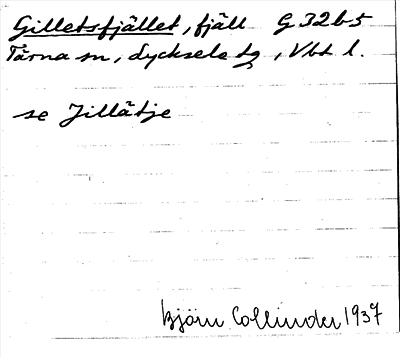 Gilletsfjället, fjäll G 32 b 5
Tärna sn, Lycksele tg, Vbt l.
se Jillåtje
Björn Collinder 1937